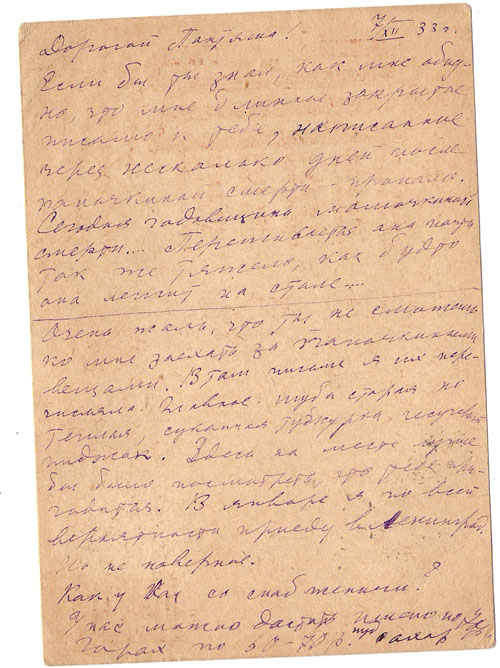 Дорогой Пантяша! 7/XII 33 г.
Если бы ты знал, как мне обид-
но, что мое длинное закрытое
письмо к тебе, написанное
через несколько дней после
папочкиной смерти – пропало.
Сегодня годовщина мамочкиной
смерти.... Переживается она почти
так же тяжело, как будто
она лежит на столе....
Очень жаль, что ты не сможешь
ко мне заехать за папочкиными
вещами. В том письме я их пере-
числяла. Главное: шуба старая но
тёплая, суконная тужурка, чесучевый
пиджак. Здесь на месте лучше
бы было посмотреть что тебе при-
годится. В январе я по всей
вероятности приеду в Ленинград.
Но не наверное.
Как у Вас со снабжением?
У нас можно достать пшено по
горох по 60-70 р. пуд сахар